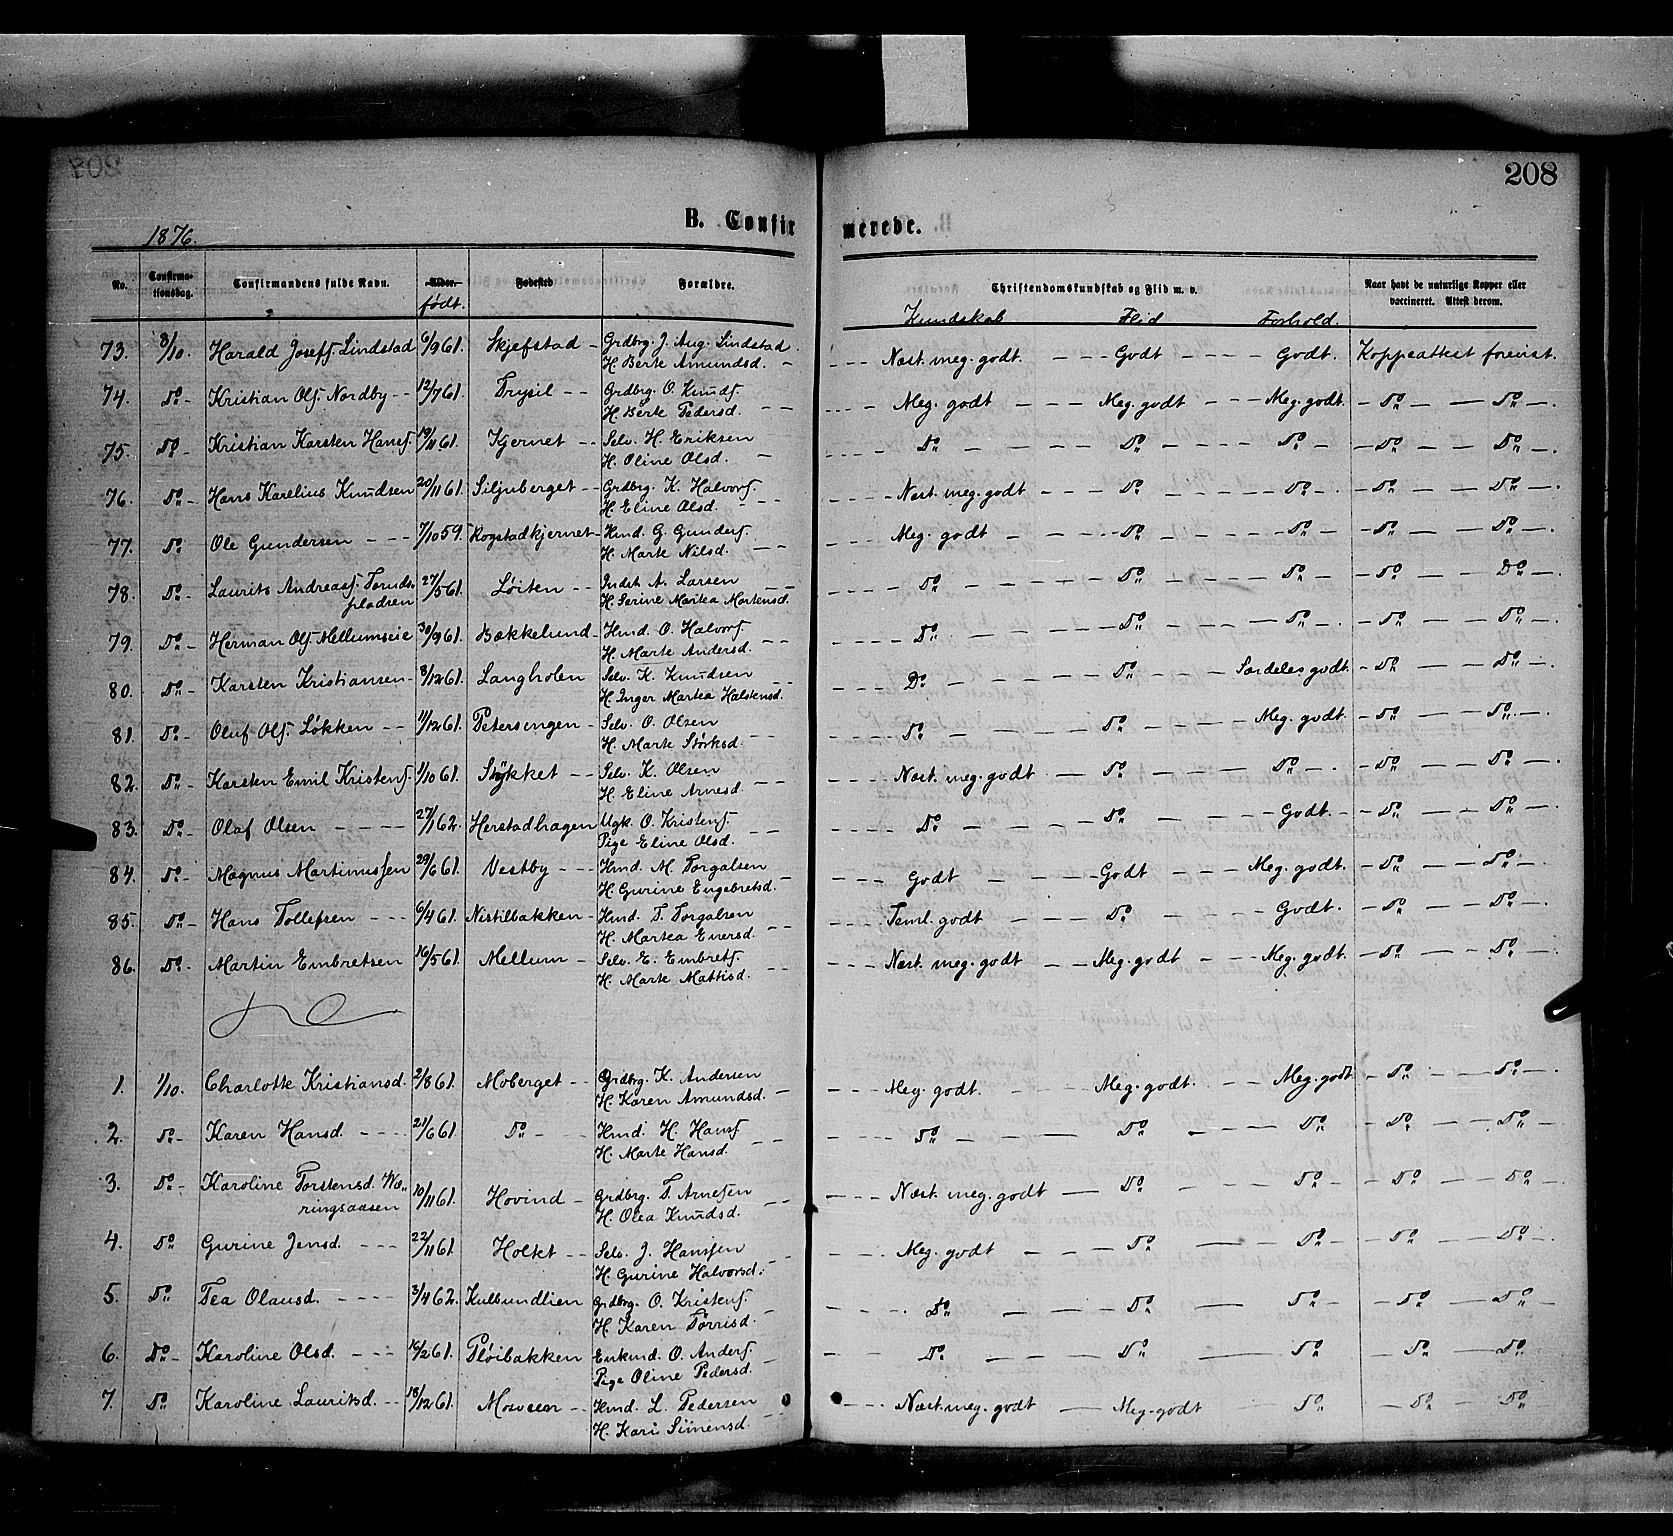 208
B. Confirmerede.
1876.
No. Confirmationsdag. Confirmandens fulde Navn. Alder. født. Fødested Forældre. Christendomskundskab og Flid m. v. Naar havt de naturlige Kopper eller vaccineret. Attest derom.
Kundskab Flid Forhold.
73. 8/10. Harald Josefs. Lindstad 6/9 61. Skjefstad - Grdbrg. J. Aug. Lindstad. Næst. meg. godt. - Godt - Godt. Koppeattest forevist.
H. Berte Amundsd.
74. Do - Kristian Ols. Nordby - 12/7 61. Trysil - Grdbrg. O. Knuds. Meg. godt - Meg. godt - Meg. godt. - Do - Do -
H. Berte Pedersd.
75. Do - Kristian Karsten Hans. 19/11 61. Kjernet - Selv. H. Eriksen Do - Do - Do - Do - Do -
H. Oline Olsd.
76. Do - Hans Karelius Knudsen 20/11 61. Siljuberget - Grdbrg. K. Halvors. Næst. meg. godt - Do - Do - Do - Do -
H. Eline Olsd.
77. Do Ole Gundersen - 7/10 59. Rogstadkjernet - Hmd. G. Gunders. Meg. godt - Do - Do - Do - Do -
H. Marte Nilsd.
78. Do - Laurits Andreas. Tomds- 27/5 61. Løiten - Indst. A. Larsen Do - Do - Do - Do - Do
pladsen H. Serine Martea Mortensd.
79. Do - Herman Ols. Mellumseie 30/9 61. Bækkelund - Hmd. O. Halvors. Do - Do - Do - Do - Do
H. Marte Andersd.
80. Do - Karsten Kristiansen - 8/12 61. Langholen Selv. K. Knudsen Do - Do - Særdeles godt. - Do - Do -
H. Inger Martea Halstensd.
81. Do - Oluf Ols. Løkken - 11/12 61. Petersengen - Selv. O. Olsen Do - Do - Meg. godt. - Do - Do -
H. Marte Størksd.
82. Do - Karsten Emil Kristens. 1/10 61. Stykket - Selv. K. Olsen Næst. meg. godt - Do - Do - Do - Do -
H. Eline Arnesd.
83. Do - Olaf Olsen - 27/1 62. Herstadhagen Ugk. O. Kristens. Do - Do - Godt. - Do - Do -
Pige Eline Olsd.
84. Do - Magnus Martinussen 29/6 61. Vestby - Hmd. M. Torgalsen Godt - Godt - Meg. godt. - Do - Do -
H. Gurine Engebretsd.
85. Do - Hans Tollefsen - 6/4 61. Nistilbakken - Hmd. T. Torgalsen Teml. godt - Do - Godt. - Do - Do -
H. Martea Eversd.
86. Do - Martin Embretsen 16/5 61. Mellum - Selv. E. Embrets. Næst. meg. godt - Meg. godt - Meg. godt. - Do - Do -
H. Marte Mattisd.
1. 1/10. Charlotte Kristiansd. 2/8 61. Moberget - Grdbrg. K. Andersen Meg. godt. - Meg. godt. - Meg. godt - Do - Do -
H. Karen Amundsd.
2. Do - Karen Hansd. - 21/6 61. Do - Hmd. H. Hans. Do - Do - Do - Do - Do -
H. Marte Hansd.
3. Do - Karoline Torstensd. Væ- 10/11 61. Hovind - Grdbrg. T. Arnesen Næst. meg. godt - Do - Do - Do - Do
ringsaasen H. Olea Knudsd.
4. Do Gurine Jensd. - 22/11 61. Holtet - Selv. J. Hanssen Meg. godt - Do - Do - Do - Do -
H. Gurine Halvorsd.
5. Do Tea Olausd. - 3/4 62. Kulbundlien Grdbrg. O. Kristens. Do - Do - Do - Do - Do -
H. Karen Tørrisd.
6. Do - Karoline Olsd. - 16/2 61. Pløibakken Enkmd. O. Anders. Do - Do - Do - Do - Do
Pige Oline Pedersd.
7. Do Karoline Lauritsd. - 18/12 61. Mosveen - Hmd. L. Pedersen Næst. meg. godt - Meg. godt Do - Do - Do
H. Kari Simensd.